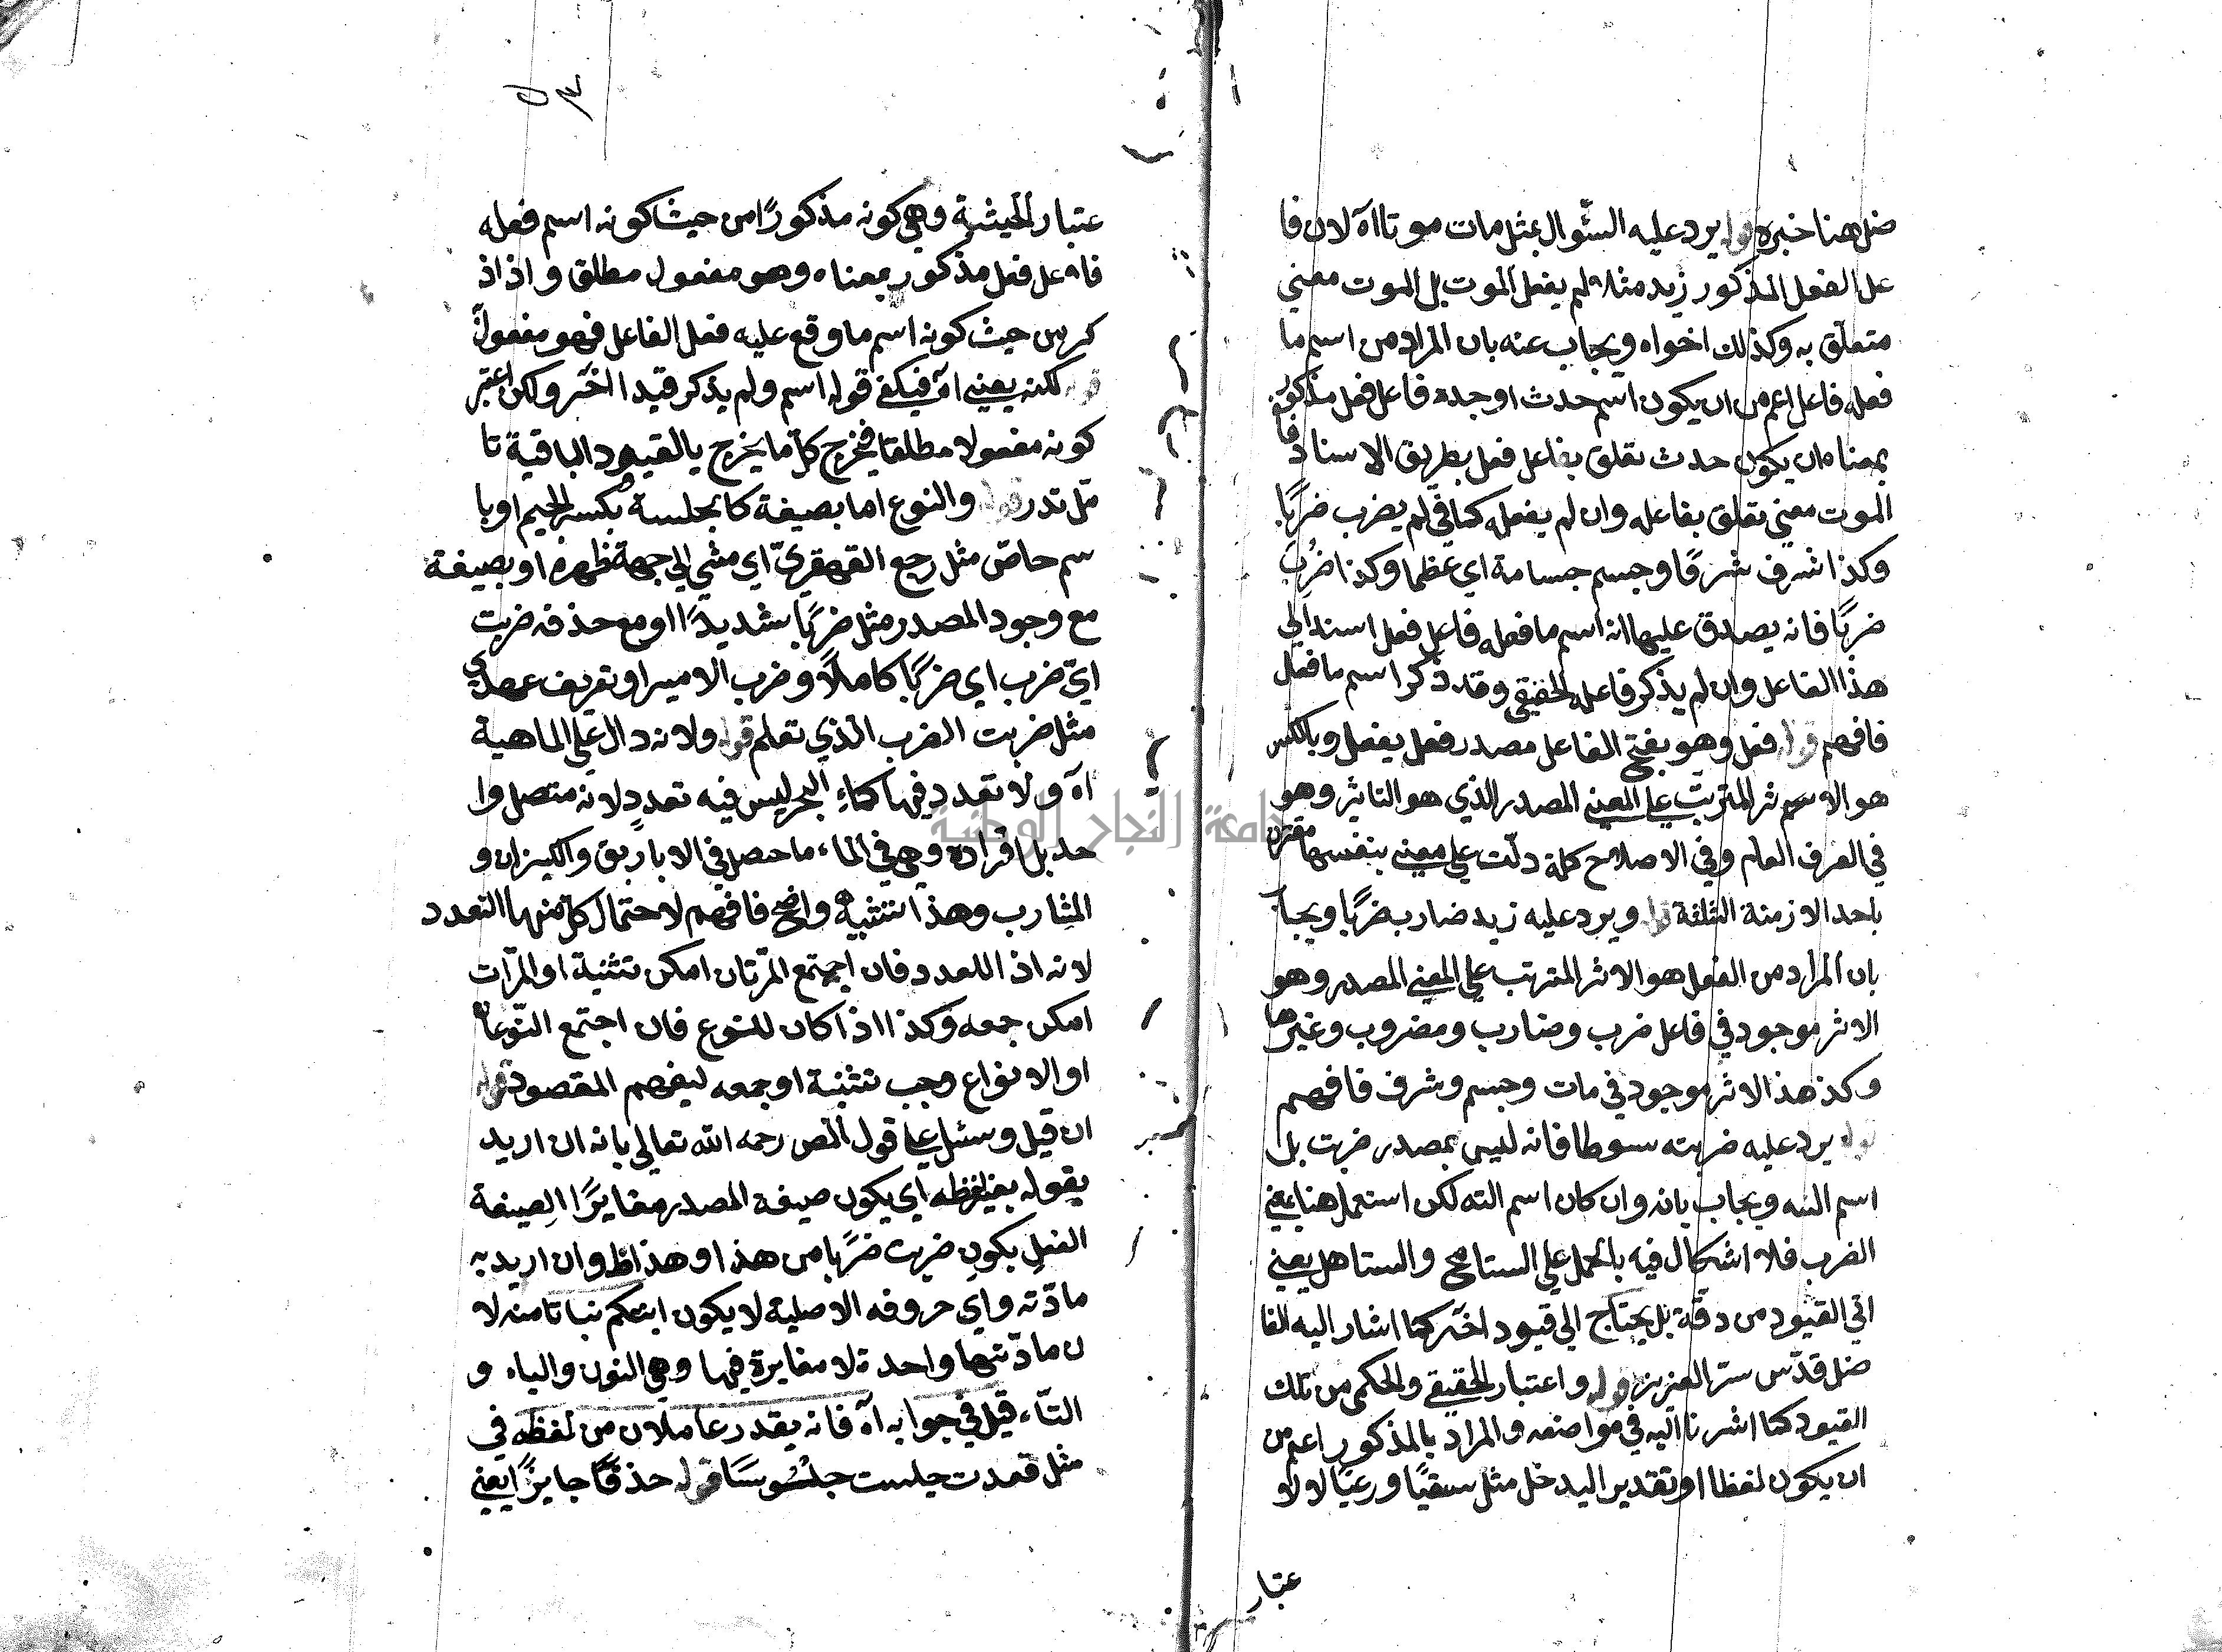 ضل هنا خبره قوله يرد عليه السئوال بمثل مات موتا اه لان فا
عل الفعل المذكور زيد مثلا لم يفعل الموت بل الموت معني
متعلق به وكذلك اخواه ويجاب عنه بان المراد من اسم ما
فعله فاعل اعم من ان يكون اسم حدث اوجده فاعل فعل مذكور
بمعناه ان يكون حدث تعلق بفاعل فعل بطريق الاسناد فا
الموت معني تعلق بفاعله وان لم يفعله كما في لم يضرب ضربًا
وكذا شرف شرفًا وجسم جسامة اي عظما وكذا ضُرِب
ضربًا فانه يصدق عليها انه اسم ما فعله فاعل فعل اسند الي
هذا الفاعل وان لم يذكر فاعله الحقيقي وقد ذكر اسم ما فعل
فافهم قوله فعل وهو بفتح الفاعل مصدر فعل يفعل وبالكسر
هو الاسم ثر المترتب علي المعني المصدر الذي هو التاثير وهو
في العرف العام وفي الاصلاح كلمة دلّت علي معني بنفسها مقترن
باحد الازمنة الثلثة قوله ويرد عليه زيد ضارب ضربًا ويجاب
بان المراد من الفعل هو الاثر المترتب علي المعني المصدر وهو
الاثر موجود في فاعل ضرب وضارب ومضروب وغيرها
وكذ هذ الاثر موجود في مات وجسم وشرف فافهم
قوله يرد عليه ضربته سوطا فانه ليس بمصدر ضربت بل
اسم الته ويجاب بانه وان كان اسم الته لكن استعمل هنا بمعني
الضرب فلا اشكال فيه بالحمل علي التسامح والتساهل يعني
في القيود من دقة بل يحتاج الي قيود اخر كما اشار اليه الفا
ضل قدّس سر العزيز قوله واعتبار الحقيقي والحكمي من تلك
القيود كما اشرنا اليه في مواضعه والمراد بالمذكور اعم من
ان يكون لفظا او تقدير اليدخل مثل سقيًا ورعيًا لولا
عتبار
٥٣
عتبار الحيثية وهي كونه مذكورًا من حيث كونه اسم فعله
فاعل فعل مذكور بمعناه وهو مفعول مطلق واذ اذ
كر من حيث كونه اسم ما وقع عليه فعل الفاعل فهو مفعولً
قوله لكنه يعني اه فيكفي قوله اسم ولم يذكر قيدا اخر ولكن اعتبر
كونه مفعولا مطلقا فيخرج كل ما يخرج بالقيود الباقية تا
مّل تدر قوله والنوع اما بصيغة كا بجلسة بكسر الجيم او با
سم خاصّ مثل رجع القهقريّ اي مشي الي جهة ظهره او بصيفة
مع وجود المصدر مثل ضربًا شديدًا او مع حذفه ضربت
ايّ ضرب اي ضربًا كاملًا وضرب الامير او تعريف عهدي
مثل ضربت الضرب الذي تعلم قوله ولانه دال علي الماهية
اه ولا تعدد فيها كماء البحر ليس فيه تعدد لانه متصل وا
حد بل افراده وهي في الماء ما حصل في الاباريق والكيزان و
المشارب وهذا تشبيه واضح فافهم لاحتمال كل منهما التعدد
لانه اذ اللعدد فان اجتمع المرّتان امكن تثنية او المرّات
امكن جمعه وكذا اذا كان للنوع فان اجتمع النّوعان
او الانواع وجب تثنية او جمعه ليفهم المقصود قوله
ان قيل وسئل علي قول المص رحمه الله تعالي بانه ان اريد
بقوله بغير لفظه اي يكون صيغة المصدر مغايرًا لصيغة
الفعل يكون ضربت ضربًا من هذا وهذا ظ وان اريد به
مادّته واي حروفه الاصلية لا يكون ابنتكم نباتا منه لا
ن مادّتها واحدة لا مغايرة فيها وهي النون والباء و
التّاء قيل في جوابه اه فانه يقدر عاملان من لفظه في
مثل قعدت جلست جلُوسًا قوله حذفًا جايزًا يعني